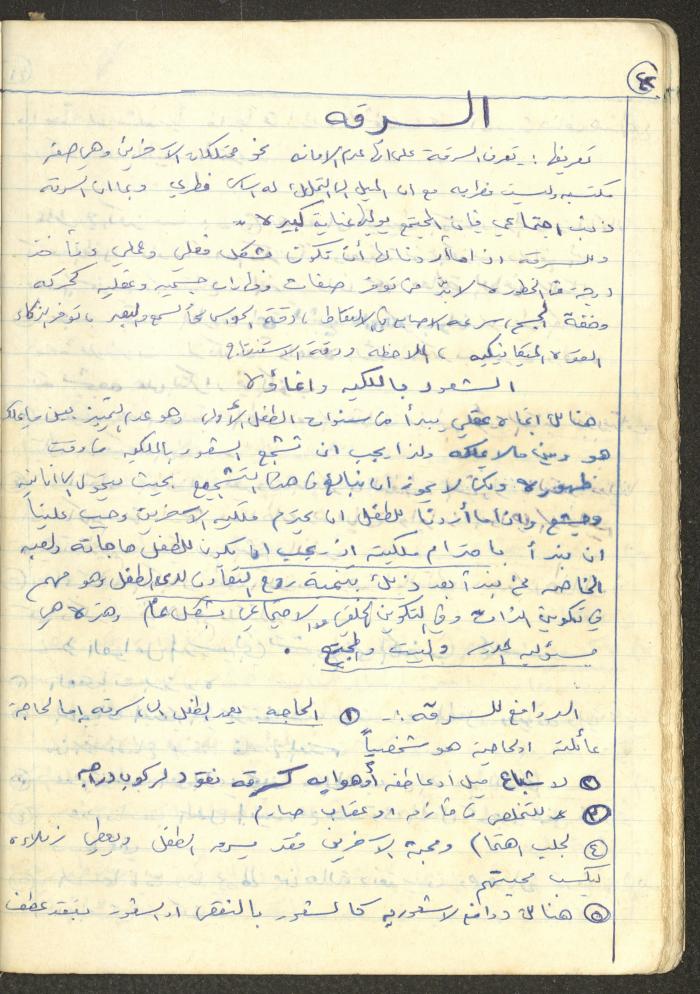 السرقه
تعريفها :- تعرف السرقة على انها عدم الامانه نحو ممتلكات الآخرين وهي صفه
مكتسبه وليست فطريه مع ان الميل الى التملك له اساس فطري وبما ان السرقه
ذنب اجتماعي فإن المجتمع يوليها عناية كبيرة ..
والسرقه اذا ما أردنا لها أن تكون بشكل فعلي وعملي وتأخذ
درجه من الخطوره لا بد من توفر صفات وقدرات جسميه وعقليه كحركه
وخفة الجسم ، سرعه الاصابع في الالتقاط ، دقة الحواس كالسمع والبصر ، توفر الذكاء
القدره الميكانيكيه ، الملاحظه ودقة الاستنتاج
الشعور بالملكيه
هنالك اتجاه عقلي يبدأ من سنوات الطفل الأولى وهو عدم التمييز بين ما يملك
هو وبين ما لا يملكه ولذا يجب ان نشجع الشعور بالملكيه من وقت
ظهوره ولكن لا يجوز ان نبالغ في هذا التشجيع بحيث يتحول الى انانيه
وجشع واذا ما أردنا للطفل ان يحترم ملكيه الآخرين وجب علينا
ان نبدأ باحترام ملكيته اذ يجب ان تكون للطفل حاجاته ولعبه
الخاصه ثم نبدأ بعد ذلك بتنمية روح التعاون لدى الطفل وهو مهم
في تكوين الذات وفي التكوين الخلقي والاجتماعي بشكل عام وهذه هي
مسؤوليه المدرسه والبيت والمجتمع .
الدوافع للسرقه :- ① الحاجه يعمد الطفل الى السرقه إما لحاجة
عائلته او لحاجته هو شخصياً
② لاشباع ميل او عاطفه أو هوايه كسرقه نقود لركوب دراجه
③ للتخلص من مأزق او عقاب صارم
④ لجلب اهتمام ومحبة الآخرين فقد يسرق الطفل ويعطي زملاءه
ليكسب محبتهم
⑤ هنالك دوافع لاشعوريه كالشعور بالنقص او الشعور بفقد عطف